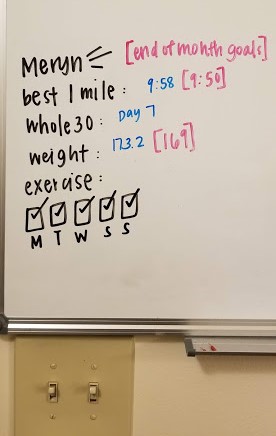 Meryn [end of month goals]
best 1 mile: 9:58 [9:50]
whole30: Day 7
weight: 173.2 [169]
exercise:
M T W S S